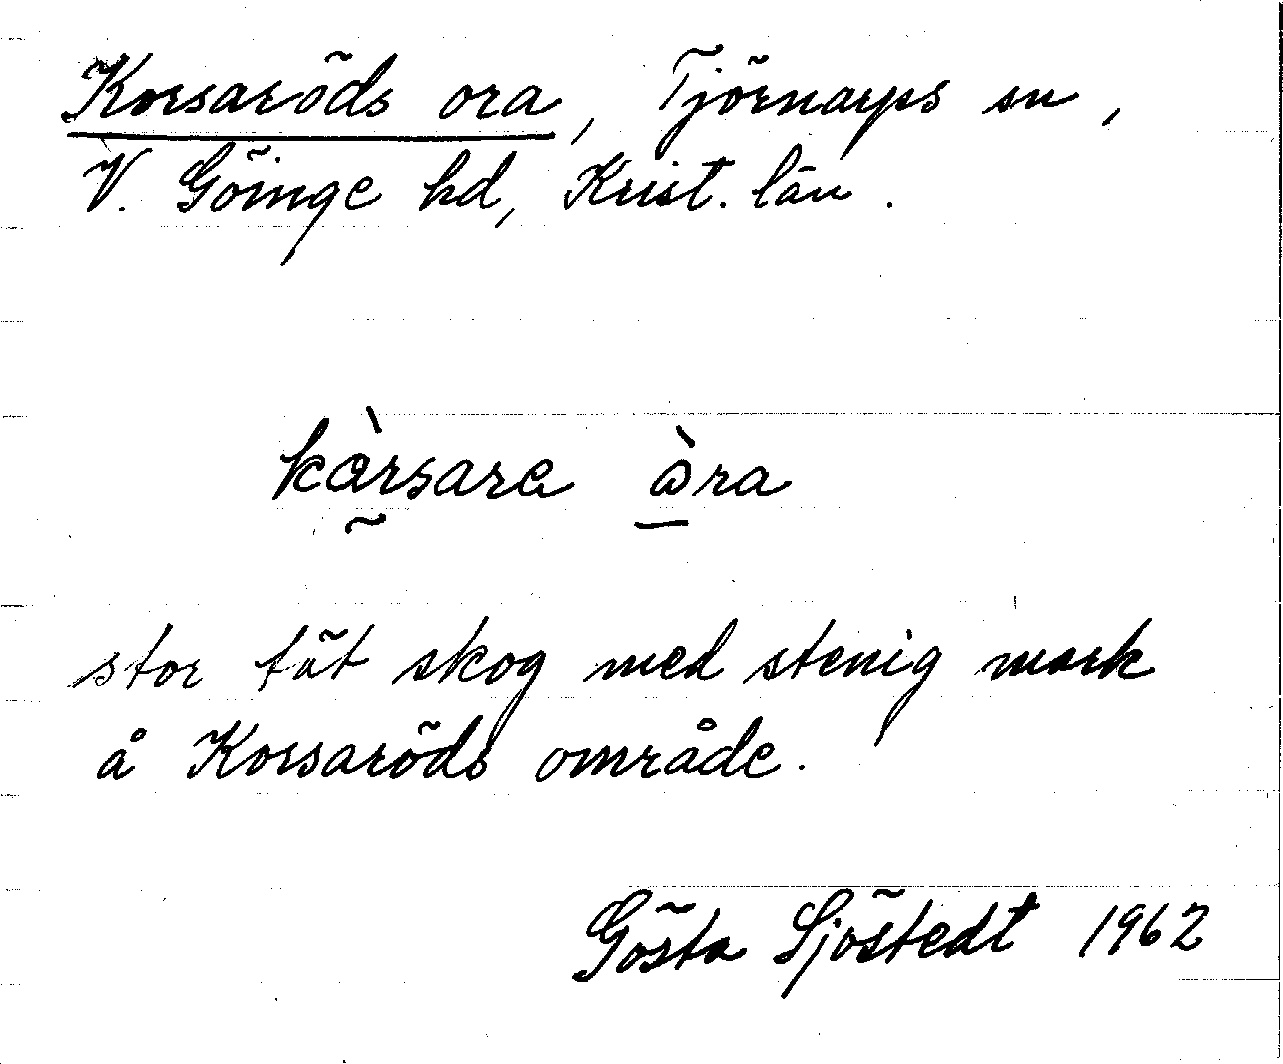 Korsaröds ora, Tjörnarps sn,
V. Göinge hd, Krist. län.
kàrsara òra
stor tät skog med stenig mark
å Korsaröds område.
Gösta Sjöstedt 1962